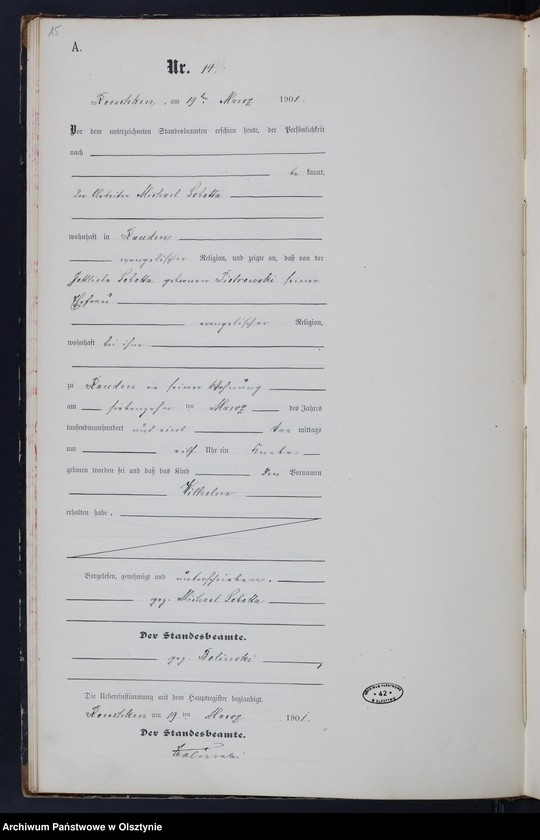 15
A.
Nr. 14.
am 19ten Maerz 1901.
Vor dem unterzeichneten Standesbeamten erschien heute, der Persönlichkeit
nach
be kannt,
der Arbeiter Michael Sobotta
wohnhaft in
evangelischer Religion, und zeigte an, daß von der
Sobotta geborenen Piotrowski seiner
Ehefrau
evangelischer Religion,
wohnhaft bei ihm
zu in seiner Wohnung
am siebenzehn ten Maerz des Jahres
tausendneunhundert und eins Vor mittags
um elf Uhr ein Knabe
geboren worden sei und daß das Kind den Vornamen
Wilhelm
erhalten habe.
Vorgelesen, genehmigt und unterschrieben.
gez. Michael Sobotta
Der Standesbeamte.
gez.
Die Uebereinstimmung mit dem Hauptregister beglaubigt.
am 19 ten Maerz 1901.
Der Standesbeamte.
ARCHIWUM PAŃSTWOWE
* 42 *
W OLSZTYNIE
Archiwum Państwowe w Olsztynie